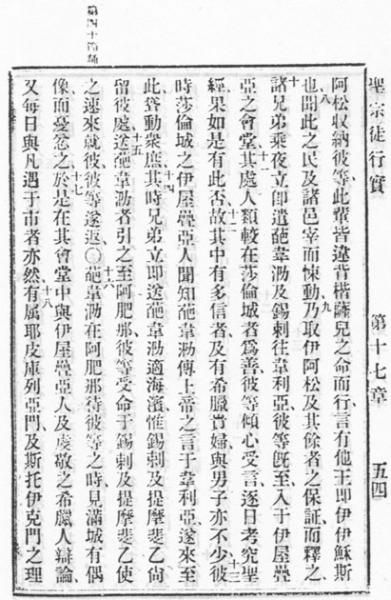 聖宗徒行實 第十七章 五四
阿松收納彼等、此輩皆違背楷薩兒之命而行、言有他王即伊伊穌斯
八也聞此之民及諸邑宰而悚動、九乃取伊阿松及其餘者之保証而釋之
十諸兄弟乘夜立即遣葩韋泐及錫剌往韋利亞、彼等旣至、入于伊屋疊
亞之會堂、十一其處人類較在莎倫城者爲善、彼等傾心受言、逐日考究聖
經、果如是有此否、十二故其中有多信者、及有希臘貴婦、與男子亦不少、十三彼
時莎倫城之伊屋疊亞人聞知葩韋泐傳上帝之言于韋利亞、遂來至
此聳動衆庶、十四其時兄弟立即送葩韋泐適海濱、惟錫剌及提摩斐乙尙
留彼處、十五送葩韋泐者引之至阿肥那、彼等受命于錫剌及提摩斐乙使
之速來就彼、彼等遂返〇十六葩韋泐在阿肥那待彼等之時、見滿城有偶
像而憂忿之、十七於是在其會堂中與伊屋疊亞人及虔敬之希臘人辯論、
又每日與凡遇于市者亦然、十八有属耶皮庫列亞門、及斯托伊克門之理
第四十